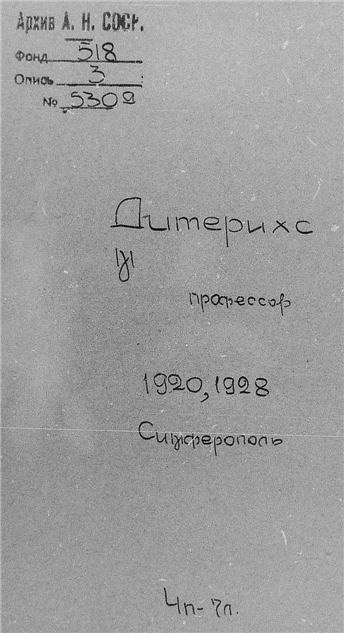 Архив А. Н. СССР.
Фонд 518
Опись 3
№ 530а
Дитерихс
профессор
1920, 1928
Симферополь
4п-7л.